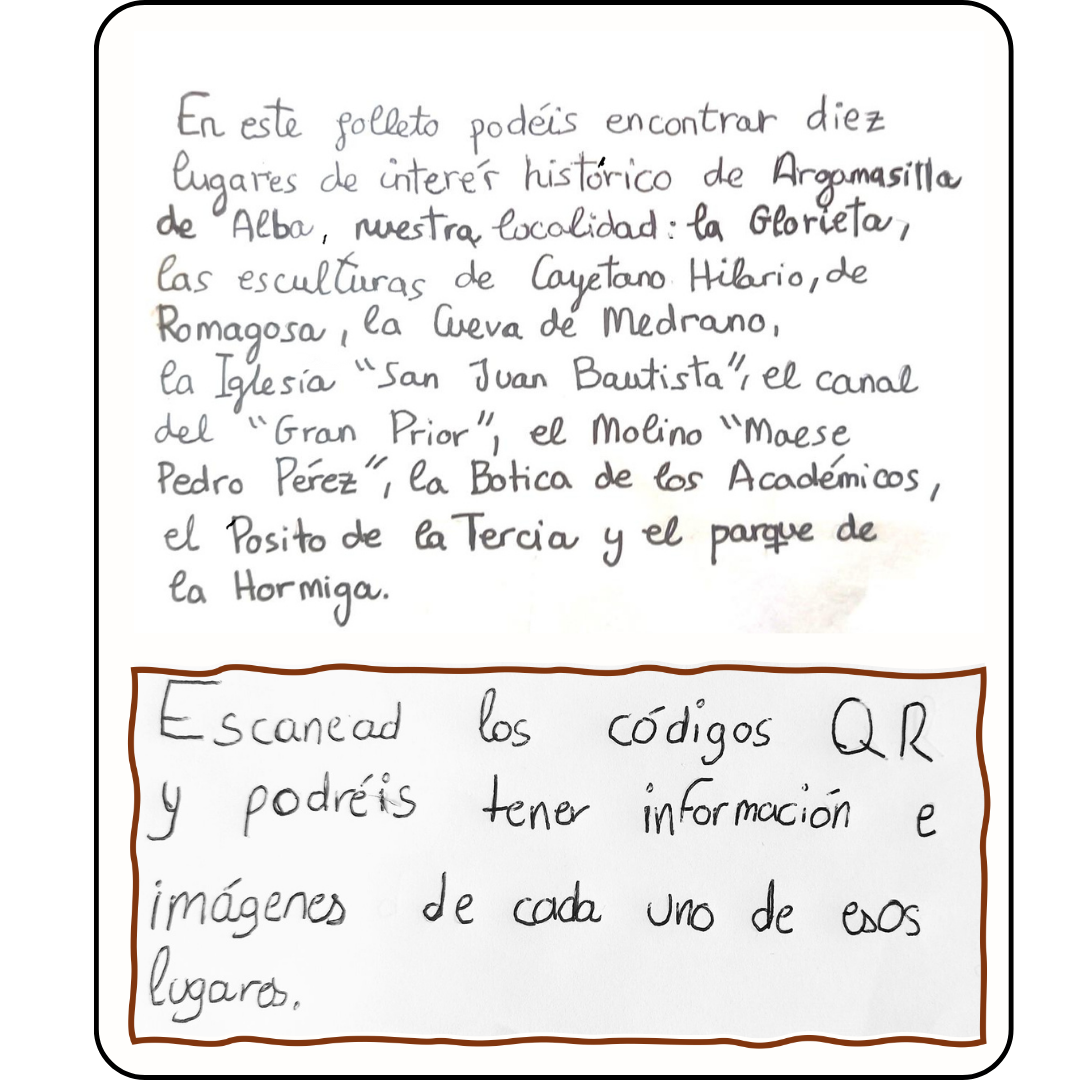 En este folleto podéis encontrar diez
lugares de interés histórico de Argamasilla
de Alba, nuestra localidad: la Glorieta,
las esculturas de Cayetano Hilario, de
Romagosa, la Cueva de Medrano,
la Iglesia "San Juan Bautista", el canal
del "Gran Prior", el Molino "Maese
Pedro Pérez", la Botica de los Académicos,
el Posito de la Tercia y el parque de
la Hormiga.
Escanead los códigos QR
y podréis tener información e
imágenes de cada uno de esos
lugares.